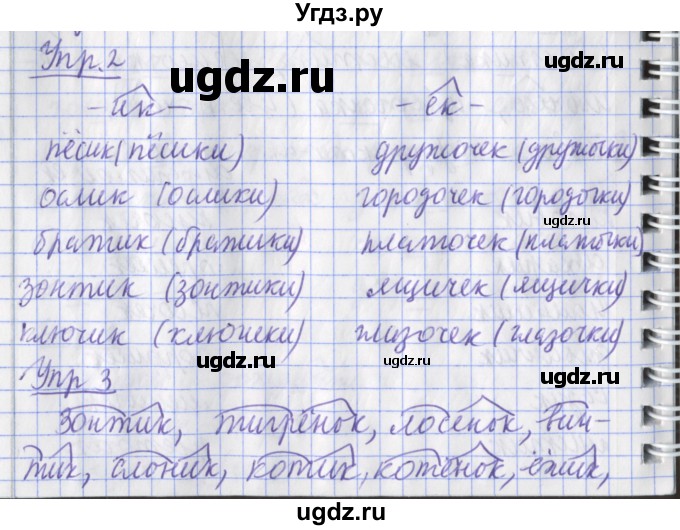 Угдз.ру
Упр.2
ugdz.ru
ugdz.ru
-ик- -ек-
пёсик(пёсики) дружочек (дружочки)
ослик (ослики) городочек (городочки)
братик (братики) платочек (платочки)
зонтик (зонтики) ящичек (ящички)
ключик (ключики) глазочек (глазочки)
ugdz.ru
ugdz.ru
Упр 3
зонтик, тигрёнок, лосёнок, вин-
тик, слоник, котик, котёнок, ёжик,
ugdz.ru
ugdz.ru